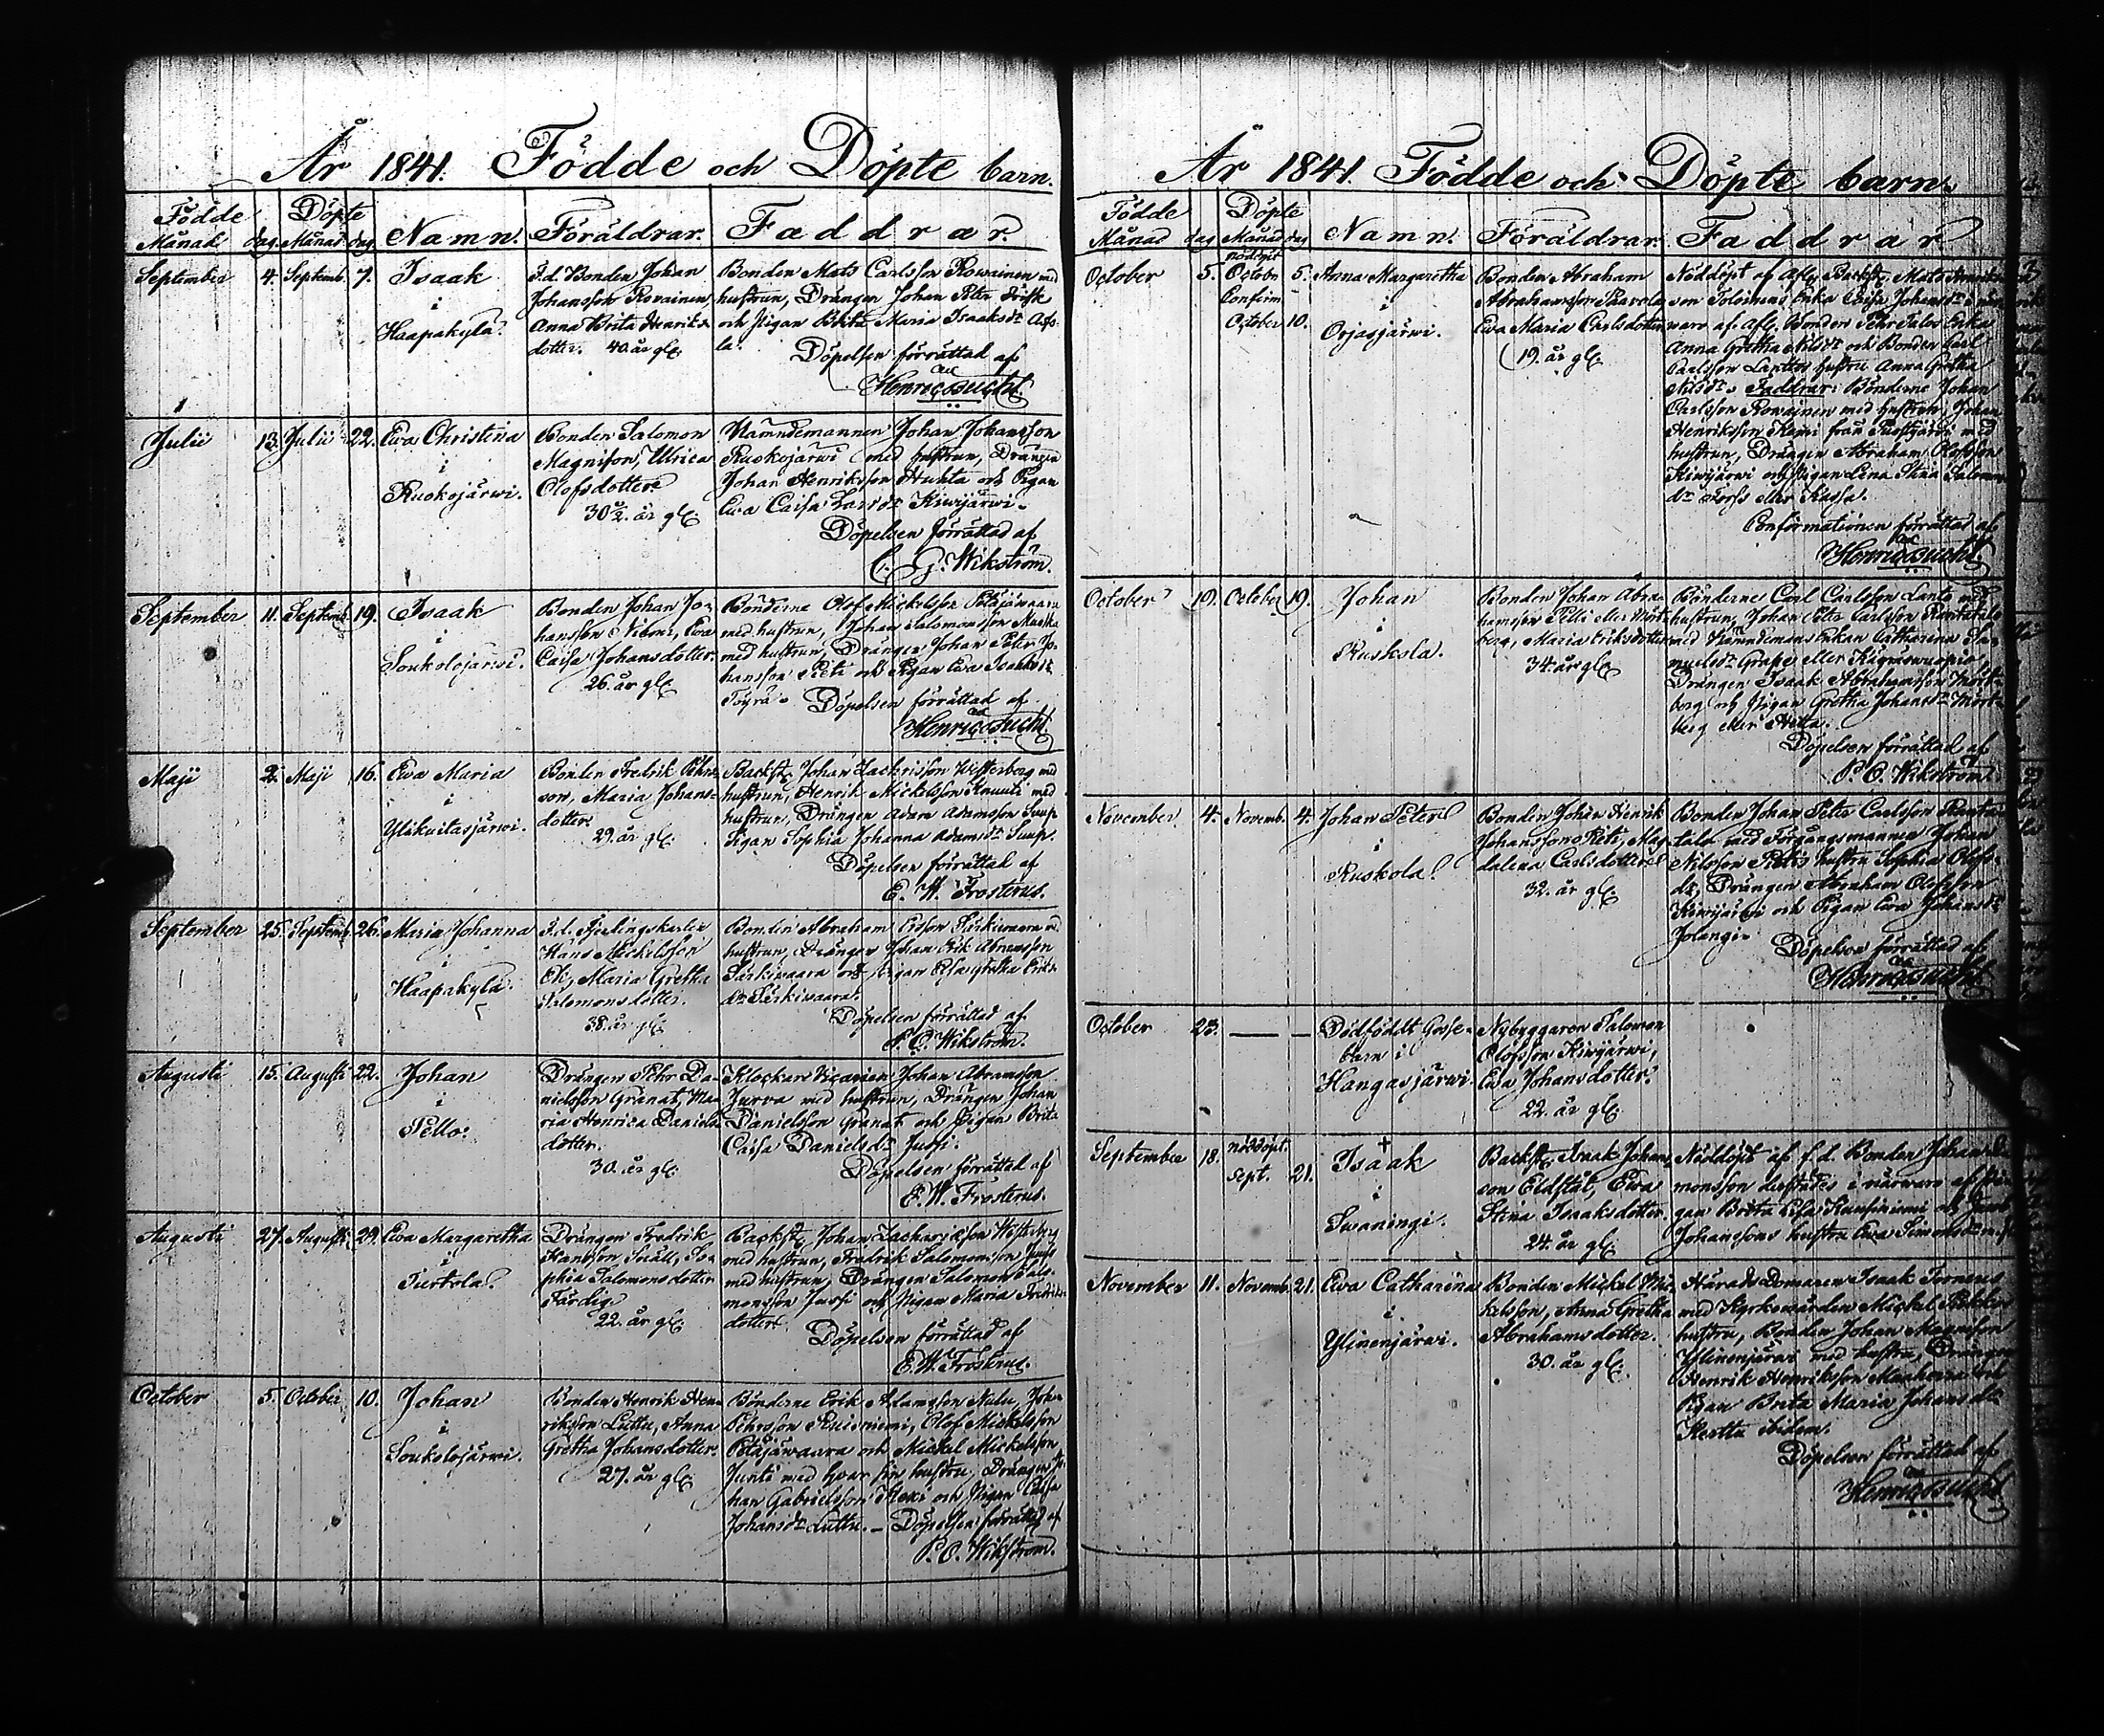 År 1841. Födde och Döpte barn.
Födde Döpte
Månad dag. Månad dag Namn. Föräldrar. Faddrar.
September 4. Septemb. 7. Isaak
i
Haapakylä.
F.d. Bonden Johan
Johansson Rovainen,
Anna Brita Henriks
dotter. 40. år gl.
Bonden Mats Carlsson Rowainen med
hustrun, Drängen Johan Peter
och Pigan Brita Maria Isaaksdr
la.
Döpelsen förrättad af
Henric Bucht.
Julii 13. Julii 22. Ewa Christina
i
Ruokojärwi.
Bonden Salomon
Magnisson, Ulrica
Olofsdotter
30 ½. år gl.
Nämndemannen Johan Johansson
Ruokojärwi med hustrun, Drängen
Johan Henriksson Huhta och Pigan
Ewa Caisa Larsdr Kiwijärwi.
Döpelsen förrättad af
C. G. Wikström.
September 11. Septemb. 19. Isaak
i
Soukolojärwi.
Bonden Johan Jo-
hansson Niemi, Ewa
Caisa Johansdotter.
26. år gl.
Bönderne Olof Mickelsson Petäjäwaara
med hustrun, Johan Salomonsson
med hustrun, Drängen Johan Peter Jo-
hansson Pieti och Pigan Ewa Isaksdr
Töyrä. Döpelsen förrättad af
Henric Bucht.
Maji 2. Maji 16. Ewa Maria
i
Ylikuitasjärwi.
Bonden Fredrik Pehrs-
son, Maria Johans-
dotter.
29. år gl.
Backst. Johan Zachrisson Westerberg med
hustrun, Henrik Mickelsson Knuuti med
hustrun, Drängen Adam Adamsson Suup
Pigan Sophia Johanna Adamsdr Suup.
Döpelsen förrättad af
E. W. Frosterus.
September 25. Septemb. 26. Maria Johanna
i
Haapakylä.
F.d.
Hans Mickelsson
Maria Gretha
Salomonsdotter.
38. år gl.
Bonden Abraham Ersson Särkiwaara md
hustrun, Drängen Johan Erik Abramsson
Särkiwaara och Pigan Elsa Gretha Eriks
dr Särkiwaara.
Döpelsen förrättad af
P. O. Wikström.
Augusti 15. Augusti 22. Johan
i
Pello.
Drängen Pehr Da-
nielsson Granat, Ma-
ria Henrica Daniels
dotter.
30. år gl.
Klockare Vicarien Johan Abramsson
Jurva med hustrun, Drängen Johan
Danielsson Granat och Pigan Brita
Caisa Danielsdr Jussi.
Döpelsen förrättad af
E. W. Frosterus.
Augusti 27. Augusti 29. Ewa Margaretha
i
Turtola.
Drängen Fredrik
Hansson Snäll, So-
phia Salomonsdotter
Färdig.
22. år gl.
Backst. Johan Zachariasson Westerberg
med hustrun, Fredrik Salomonsson Jussi
med hustrun, Drängen Salomon Salo-
monsson Jussi och Pigan Maria Fredriks
dotter.
Döpelsen förrättad af
E. W. Frosterus.
October 5. October 10. Johan
i
Soukolojärwi.
Bonden Henrik Hen-
riksson Luttu, Anna
Gretha Johansdotter.
27. år gl.
Bönderne Erik Adamsson Nulu, Johan
Pehrsson Ruisniemi, Olof Mickelsson
Petäjäwaara och Mickel Mickelsson
Junti med hvar sin hustru, Drängen Jo-
han Gabrielsson och Pigan Caisa
Johansdr Luttu. – Döpelsen förrättad af
P. O. Wikström.
År 1841. Födde och Döpte barn.
Födde Döpte
Månad dag Månad dag Namn. Föräldrar. Faddrar
October 5. nöddöpt October 5. Confirm October 10. Anna Margaretha
i
Orjasjärwi.
Bonden Abraham
Abrahamsson Paavola
Ewa Maria Carlsdotter
19. år gl.
Nöddöpt af Afl. Backst. Mats
son Toloinens Enka Caisa Johansdr i när
waro af Afl. Bonden Pehr Talos Enka
Anna Gretha Nilsdr och Bonden Carl
Carlsson Lanttos hustru Anna Gretha
Nilsdr. Faddrar: Bönderne Johan
Carlsson Rowainen med hustrun, Johan
Henriksson från med
hustrun, Drängen Abraham Olofsson
Kiwijärwi och Pigan Lena Stina Salomons
dr eller
Confirmationen förrättad af
Henric Bucht.
October 19. October 19. Johan
i
Ruskola.
Bonden Johan Abra-
hamsson Pelli eller Mört-
berg, Maria Eriksdotter
34. år gl.
Bönderne Carl Carlsson Lanto med
hustrun, Johan Peter Carlsson Rantatalo
med Nämndemans Enkan Catharina Sa-
muelsdr Grape eller
Drängen Isaak Abrahamsson Mört-
berg och Pigan Gretha Johansdr Mört-
berg eller
Döpelsen förrättad af
P. O. Wikström.
November 4. Novemb. 4. Johan Peter
i
Ruskola.
Bonden Johan Henrik
Johansson Pieti, Mag-
dalena Carlsdotter
32. år gl.
Bonden Johan Peter Carlsson Ranta-
talo med Förgångsmannen Johan
Nilsson Pietis hustru Sophia Olofs-
dr, Drängen Abraham Olofsson
Kiwijärwi och Pigan Ewa Johansdr
Jolangi.
Döpelsen förrättad af
Henric Bucht.
October 23. — — Dödföddt Gosse-
barn i
Hangasjärwi
Nybyggaren Salomon
Olofsson Kiwijärwi,
Ewa Johansdotter.
22. år gl.
September 18. nöddöpt. Sept. 21. Isaak
i
Swaningi.
Backst. Isaak Johans-
son Eldstål, Ewa
Stina Isaaksdotter.
24. år gl.
Nöddöpt af f.d. Bonden Johan
monsson i närwaro af Pi-
gan Brita Elsa Kaupiniemi och
Johanssons hustru Ewa Simonsdr
November 11. Novemb. 21. Ewa Catharina
i
Ylinenjärwi.
Bonden Mickel Mic-
kelsson, Anna Gretha
Abrahamsdotter.
30. år gl.
Härads Domaren Isaak Fornerus
med Kyrkowärden Mickel
hustru, Bonden Johan Magnisson
Ylinenjärwi med hustru, Drängen
Henrik Henriksson och
Pigan Brita Maria Johansdr
Kerttu ibidem.
Döpelsen förrättad af
Henric Bucht